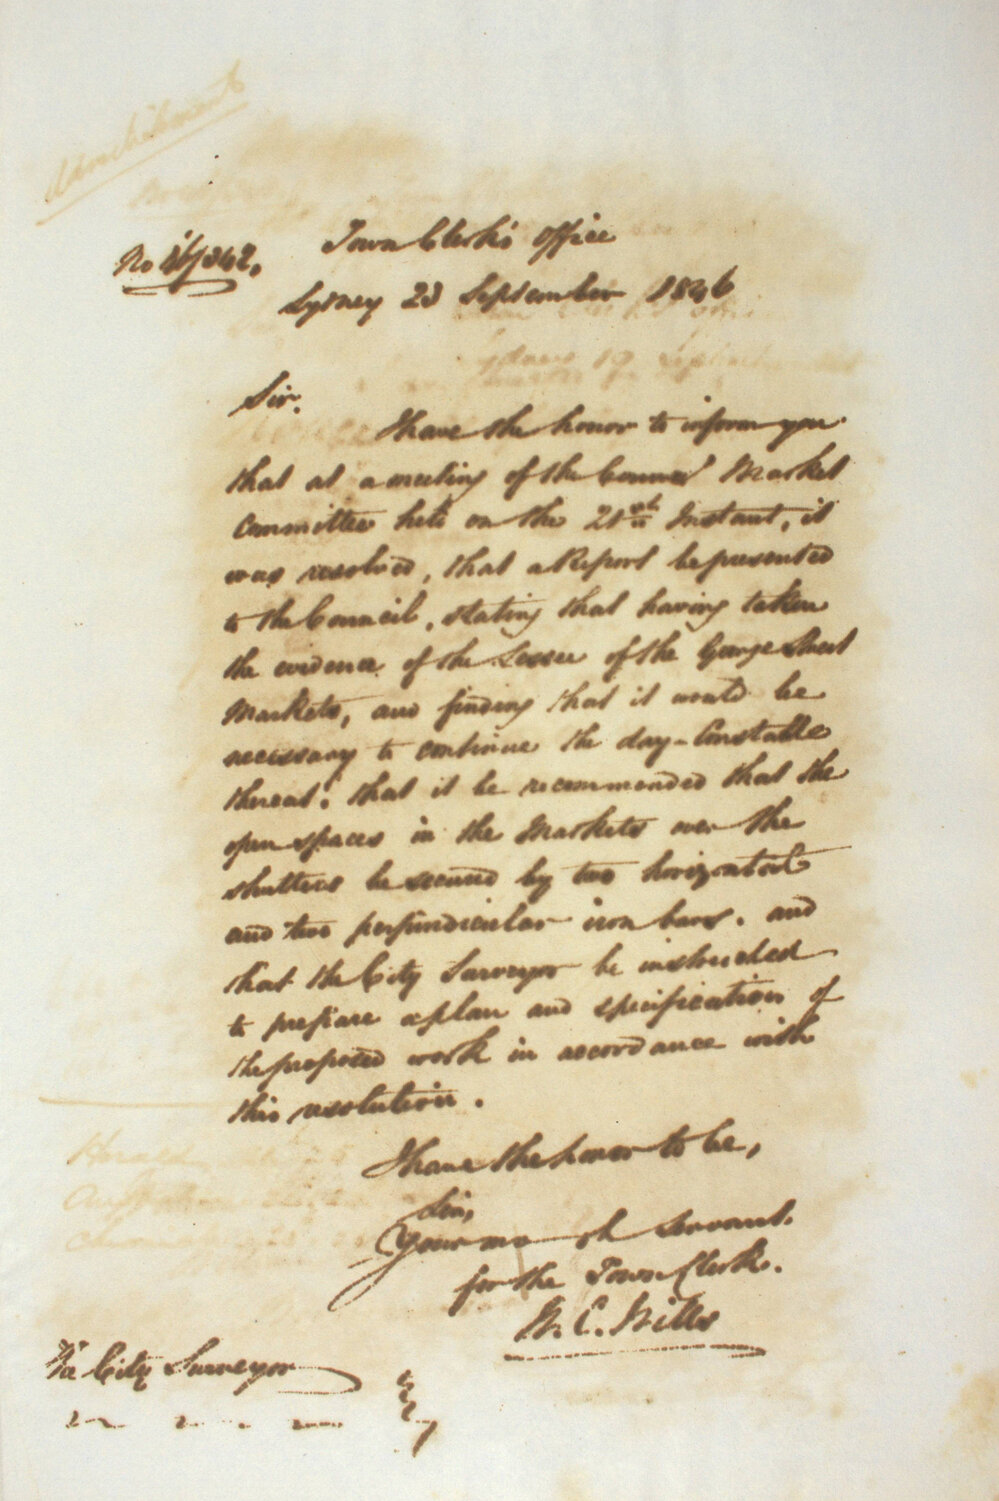 No 46/342.
Town Clerk's Office
Sydney 23 September 1846
Sir.
I have the honor to inform you
that at a meeting of the Council Market
Committee held on the 21st Instant, it
was resolved, that a Report be presented
to the Council, stating that having taken
the evidence of the Lessee of the George Street
Markets, and finding that it would be
necessary to continue the day-Constable
thereat; that it be recommended that the
open spaces in the Markets over the
shutters be secured by two horizontal
and two perpendicular iron bars. and
that the City Surveyor be instructed
to prepare a plan and specification of
the proposed work in accordance with
this resolution.
I have the honor to be,
Sir,
Your mo ob Servant.
for the Town Clerk.
W. C. Wills
City Surveyor